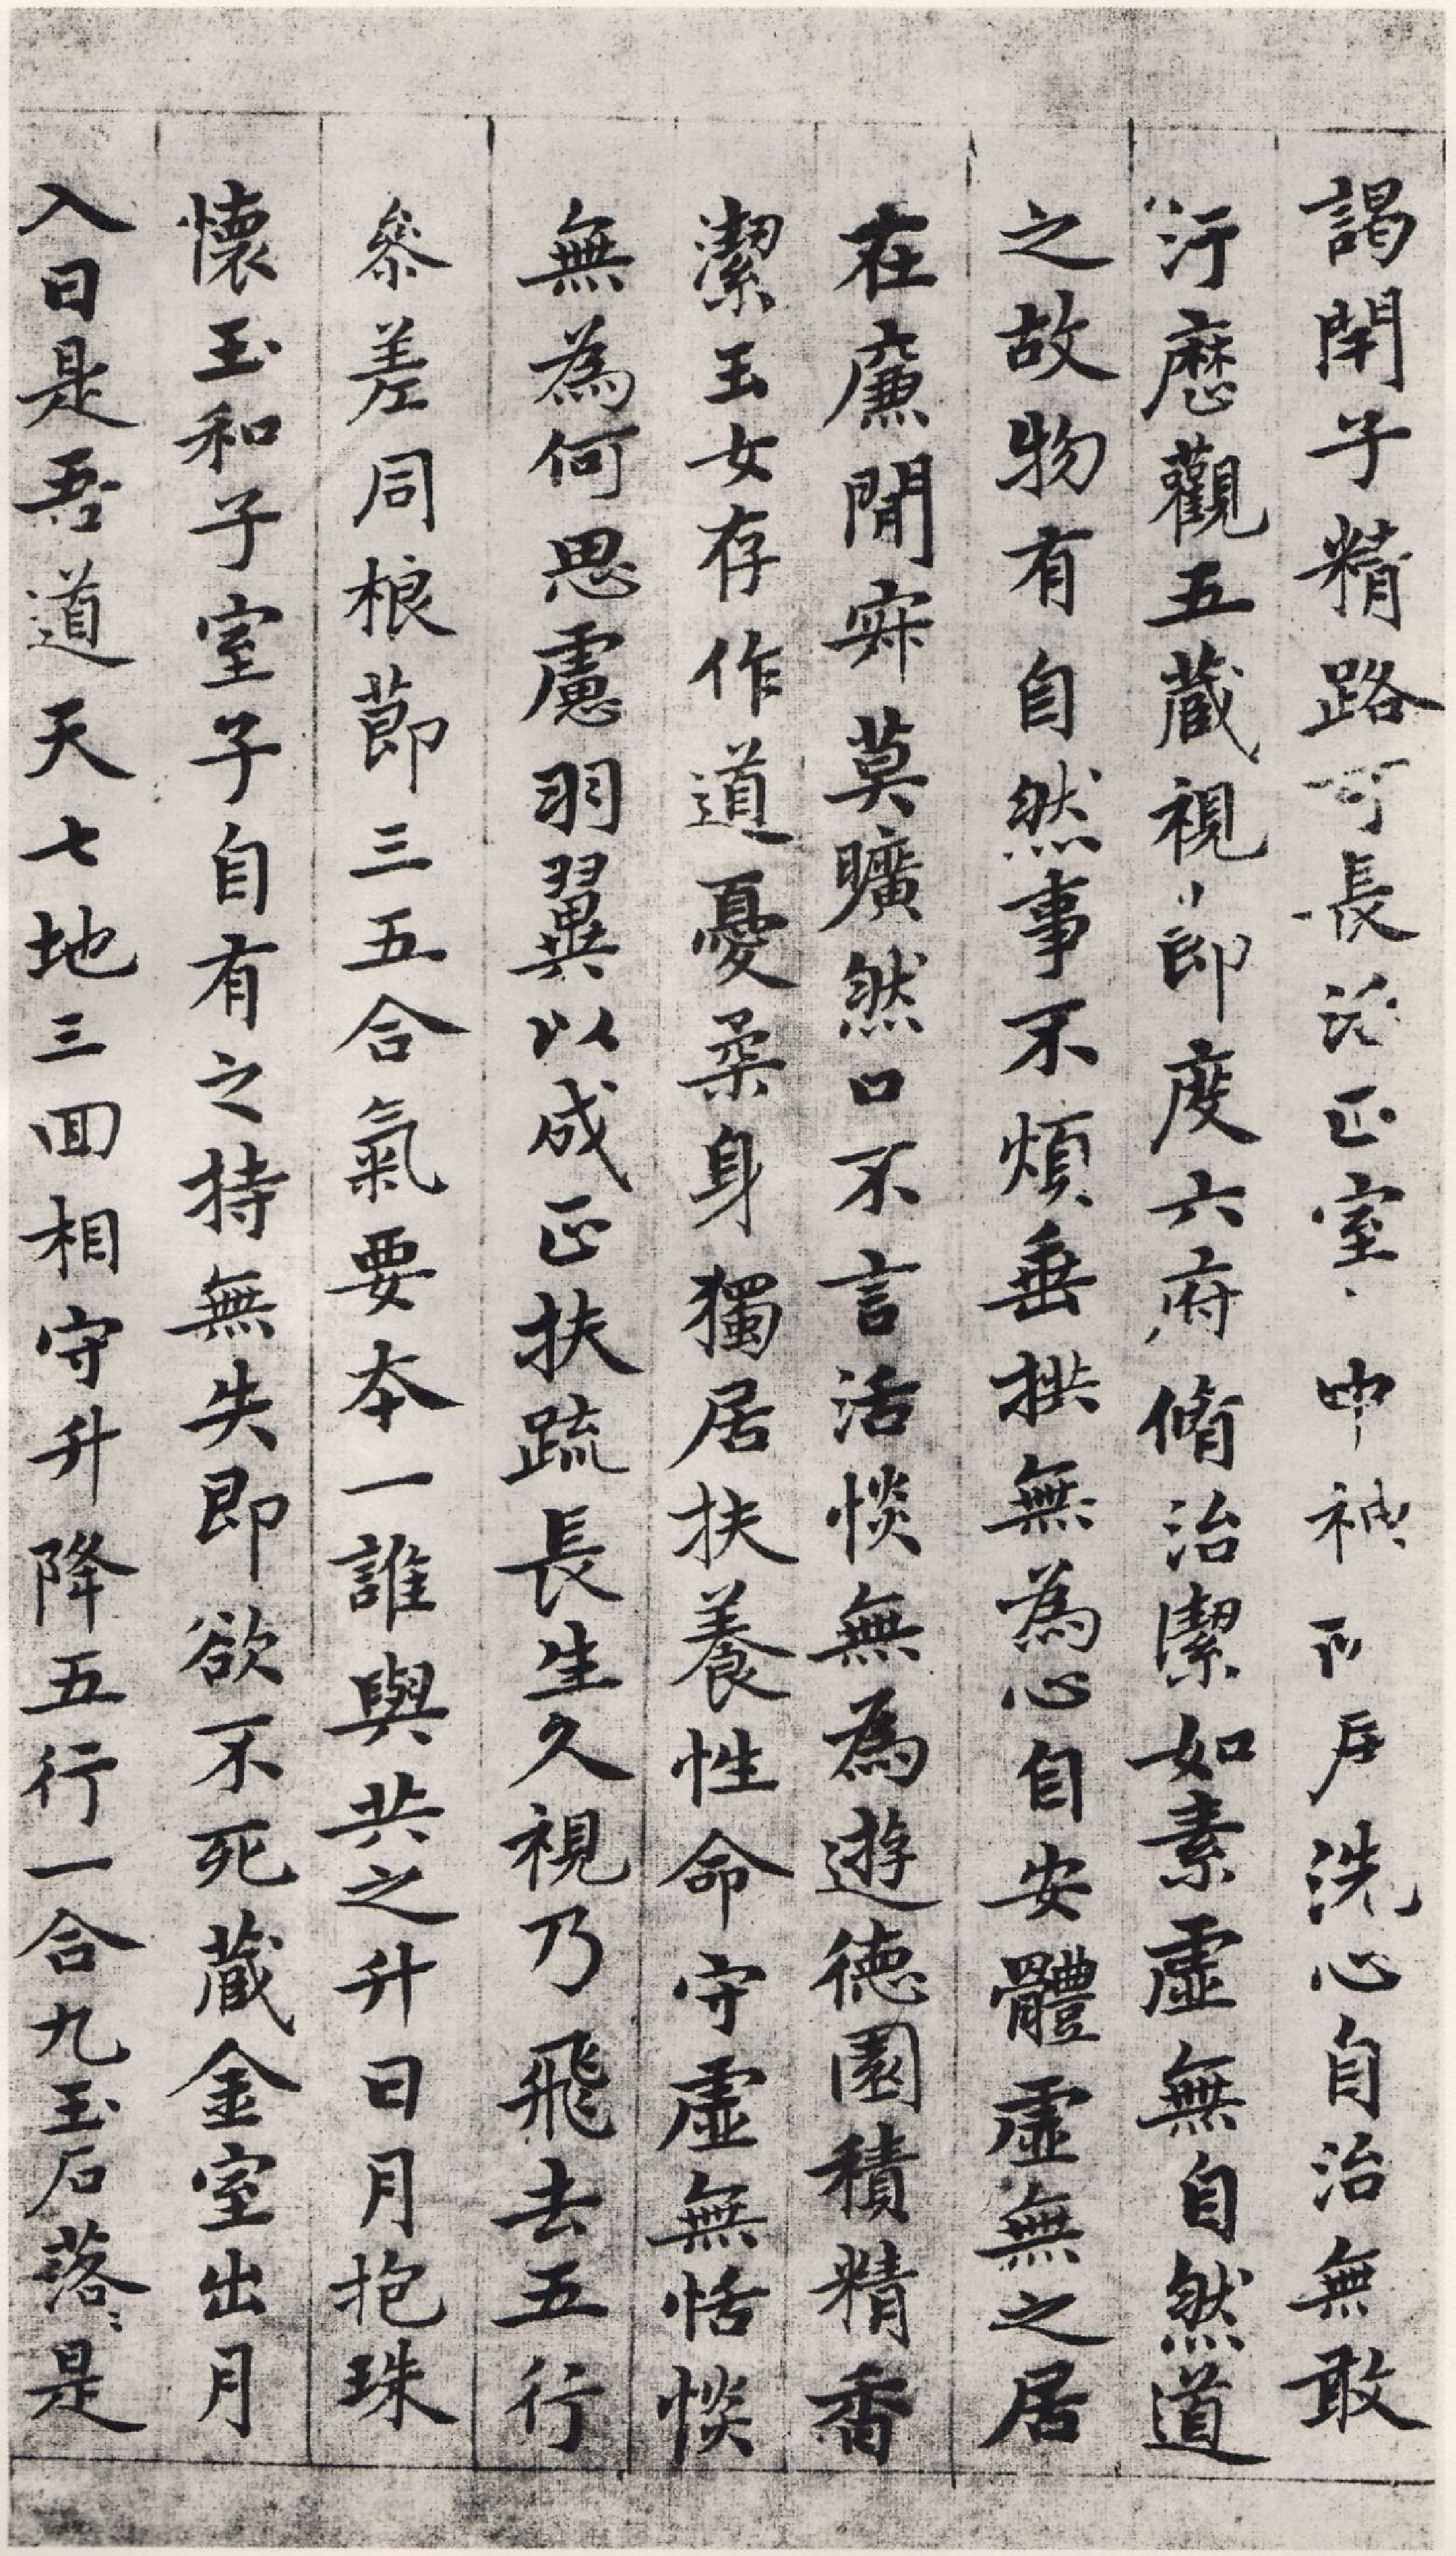 謁閉子精路可長活正室中神所居洗心自治無敢
汙歷觀五藏視節度六府脩治潔如素虛無自然道
之故物有自然事不煩垂拱無為心自安體虛無之居
在廉閒寂莫曠然口不言活惔無為遊德園積精香
潔玉女存作道憂柔身獨居扶養性命守虛無恬惔
無為何思慮羽翼以成正扶疏長生久視乃飛去五行
參差同根節三五合氣要本一誰與共之升日月抱珠
懷玉和子室子自有之持無失即欲不死藏金室出月
入日是吾道天七地三回相守升降五行一合九玉石落〻是